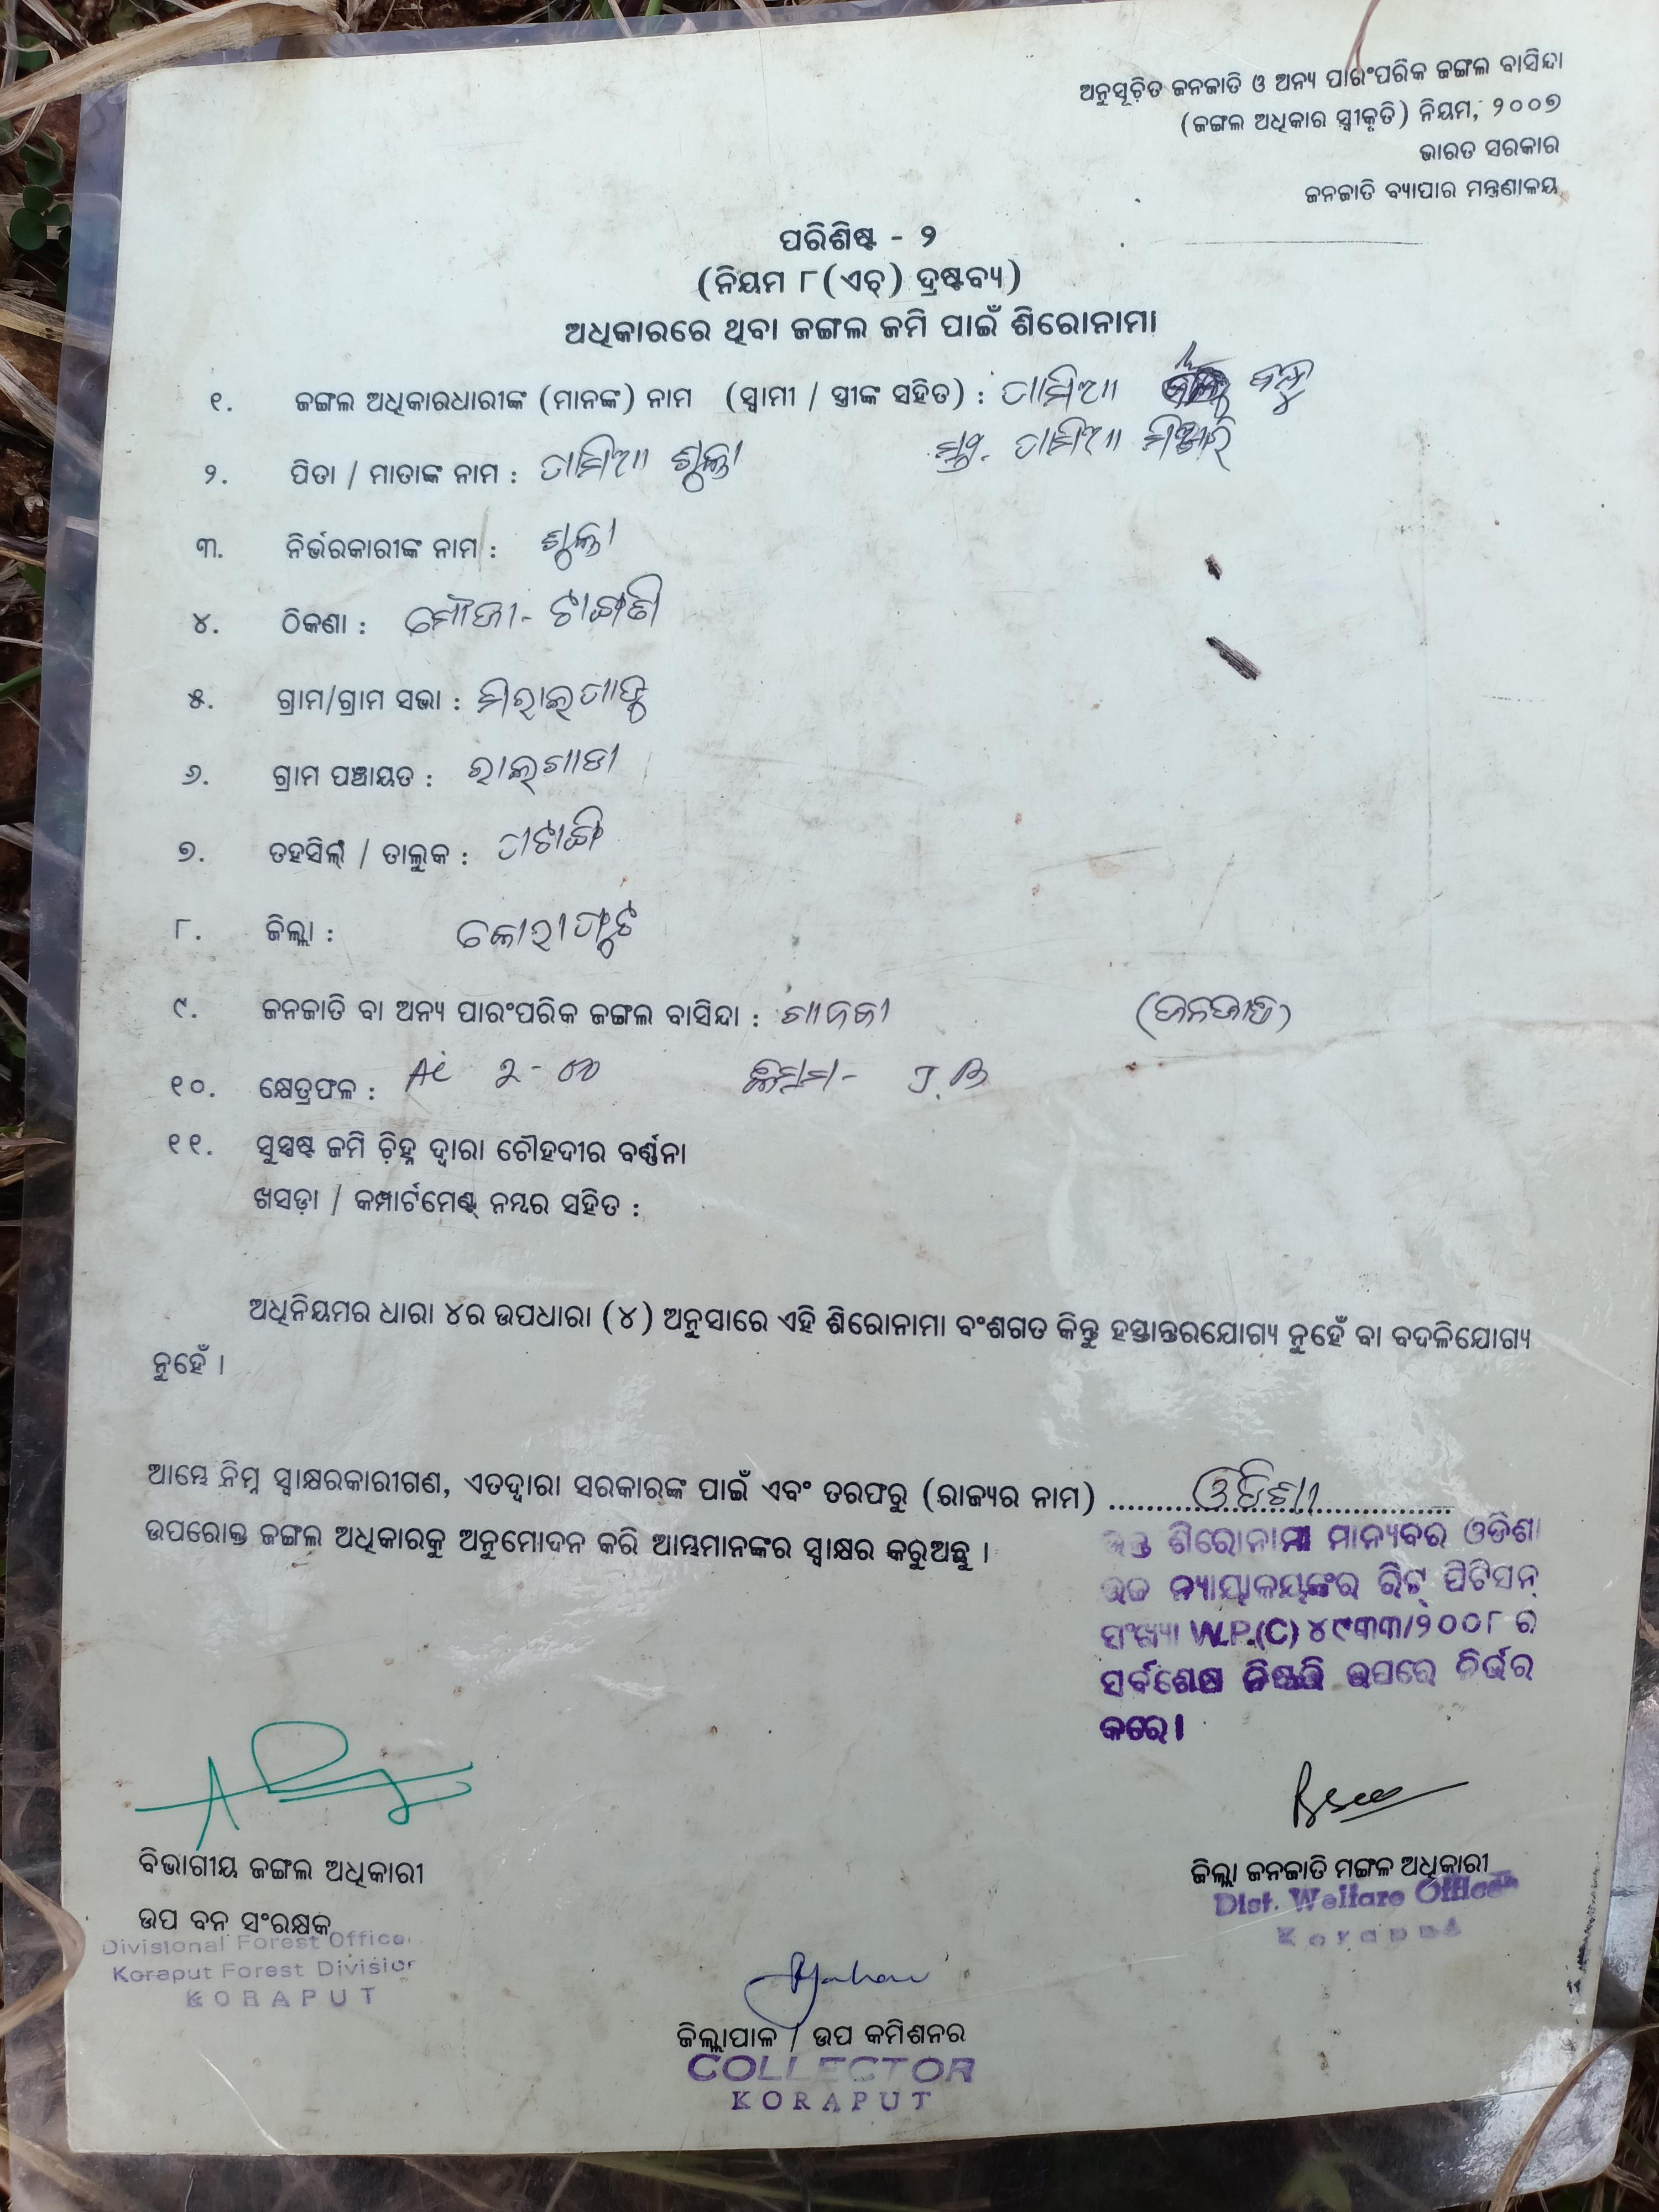 ଅନୁସୂଚିତ ଜନଜାତି ଓ ଅନ୍ୟ ପାରଂପରିକ ଜଙ୍ଗଲ ବାସିନ୍ଦା
(ଜଙ୍ଗଲ ଅଧିକାର ସ୍ୱୀକୃତି) ନିୟମ, ୨୦୦୭
ଭାରତ ସରକାର
ଜନଜାତି ବ୍ୟାପାର ମନ୍ତ୍ରଣାଳୟ
ପରିଶିଷ୍ଟ - ୨
(ନିୟମ ୮(ଏଚ୍) ଦ୍ରଷ୍ଟବ୍ୟ)
ଅଧିକାରରେ ଥିବା ଜଙ୍ଗଲ ଜମି ପାଇଁ ଶିରୋନାମା
୧. ଜଙ୍ଗଲ ଅଧିକାରଧାରୀଙ୍କ (ମାନଙ୍କ) ନାମ (ସ୍ୱାମୀ / ସ୍ତ୍ରୀଙ୍କ ସହିତ) :
୨. ପିତା / ମାତାଙ୍କ ନାମ :
୩. ନିର୍ଭରକାରୀଙ୍କ ନାମ :
୪. ଠିକଣା : ମୌଜା -
୫. ଗ୍ରାମ/ଗ୍ରାମ ସଭା :
୬. ଗ୍ରାମ ପଞ୍ଚାୟତ :
୭. ତହସିଲ୍ / ତାଲୁକ : ପଟାଙ୍ଗି
୮. ଜିଲ୍ଲା : କୋରାପୁଟ
୯. ଜନଜାତି ବା ଅନ୍ୟ ପାରଂପରିକ ଜଙ୍ଗଲ ବାସିନ୍ଦା : (ଜନଜାତି)
୧୦. କ୍ଷେତ୍ରଫଳ :
୧୧. ସୁସ୍ପଷ୍ଟ ଜମି ଚିହ୍ନ ଦ୍ୱାରା ଚୌହଦୀର ବର୍ଣ୍ଣନା
ଖସଡ଼ା / କମ୍ପାର୍ଟମେଣ୍ଟ୍ ନମ୍ବର ସହିତ :
ଅଧିନିୟମର ଧାରା ୪ର ଉପଧାରା (୪) ଅନୁସାରେ ଏହି ଶିରୋନାମା ବଂଶଗତ କିନ୍ତୁ ହସ୍ତାନ୍ତରଯୋଗ୍ୟ ନୁହେଁ ବା ବଦଳିଯୋଗ୍ୟ
ନୁହେଁ ।
ଆମ୍ଭେ ନିମ୍ନ ସ୍ୱାକ୍ଷରକାରୀଗଣ, ଏତଦ୍ୱାରା ସରକାରଙ୍କ ପାଇଁ ଏବଂ ତରଫରୁ (ରାଜ୍ୟର ନାମ) ଓଡିଶା
ଉପରୋକ୍ତ ଜଙ୍ଗଲ ଅଧିକାରକୁ ଅନୁମୋଦନ କରି ଆମ୍ଭମାନଙ୍କର ସ୍ୱାକ୍ଷର କରୁଅଛୁ ।
ଉକ୍ତ ଶିରୋନାମା ମାନ୍ୟବର ଓଡିଶା
ଉଚ୍ଚ ନ୍ୟାୟାଳୟଙ୍କର ରିଟ୍ ପିଟିସନ୍
ସଂଖ୍ୟା W.P.(C) ୪୯୩୩/୨୦୦୮ ର
ସର୍ବଶେଷ ନିଷ୍ପତ୍ତି ଉପରେ ନିର୍ଭର
କରେ।
ବିଭାଗୀୟ ଜଙ୍ଗଲ ଅଧିକାରୀ
ଉପ ବନ ସଂରକ୍ଷକ
Divisional Forest Officer
Koraput Forest Division
KORAPUT
ଜିଲ୍ଲା ଜନଜାତି ମଙ୍ଗଳ ଅଧିକାରୀ
Dist. Welfare Officer
Koraput
ଜିଲ୍ଲାପାଳ / ଉପ କମିଶନର
COLLECTOR
KORAPUT